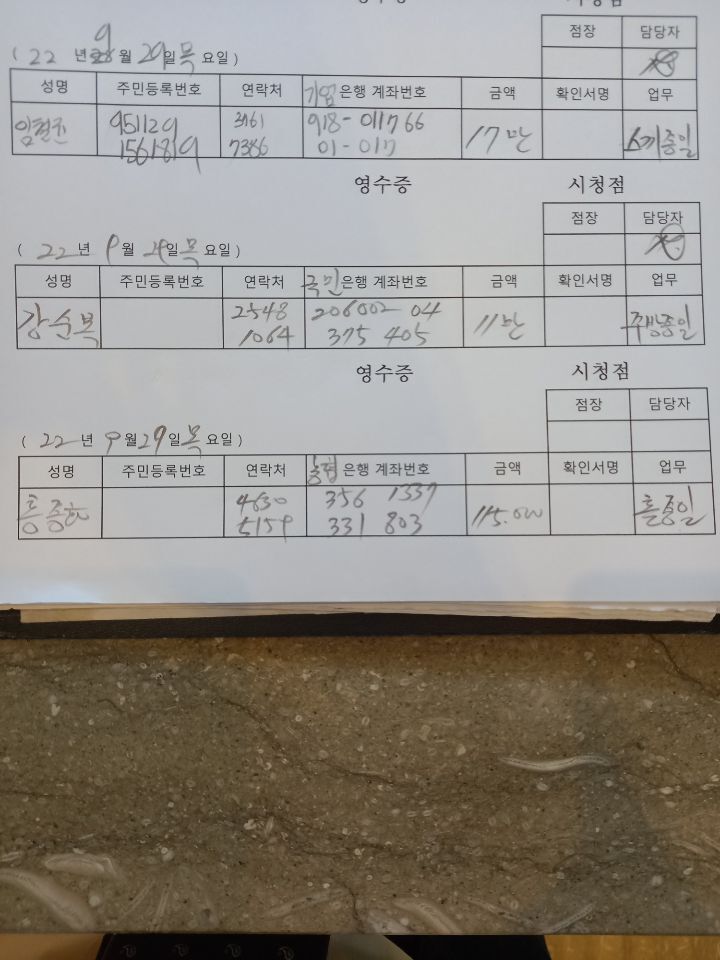 영수증 시청점
점장 담당자
( 22 년 9월 29일 목요일 )
성명 주민등록번호 연락처 기업은행 계좌번호 금액 확인서명 업무
951129 3161 918-011766 17만
1561819 7386 01-017
영수증 시청점
점장 담당자
( 22 년 9월 29일 목요일 )
성명 주민등록번호 연락처 국민은행 계좌번호 금액 확인서명 업무
강순복 2548 206002 04 11만 주방종일
1064 375 405
영수증 시청점
점장 담당자
( 22 년 9월 29일 목요일 )
성명 주민등록번호 연락처 농협은행 계좌번호 금액 확인서명 업무
4630 356 1337 115.000 홀종일
5159 331 803